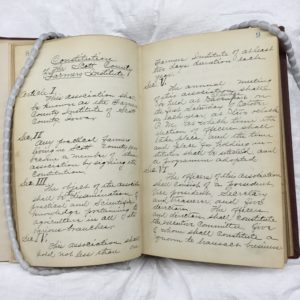 Constitution
The Scott County
Farmers Institute!
Article I.
This association shall
be known as the Farmers
County Institute of Scott
County Iowa.
Sec. II.
Any practical farmer
living in Scott County
become a member of the
association by signing the
Constitution.
Sec. III.
The object of this association
shall be dissemination of
practical and Scientific
knowledge pertaining to
agriculture in all of its
various branches.
Sec. IV.
This association shall
hold not less than one
9
Farmers Institute of at least
two days duration each
year.
Sec. V.
The annual meeting
of this association shall
be held at
first Saturday of
in each year at two o'clock
P.M. at which time the
election of officers shall
take place and the time
and place for holding an
institute shall be selected, and
a programme adopted
Sec. VI.
The officers of this association
shall consist of a president
vice president, Secretary
and treasurer and five
directors. The officers
and directors shall constitute
the executive Committee, five
of whom shall constitute a
quorum to transact business